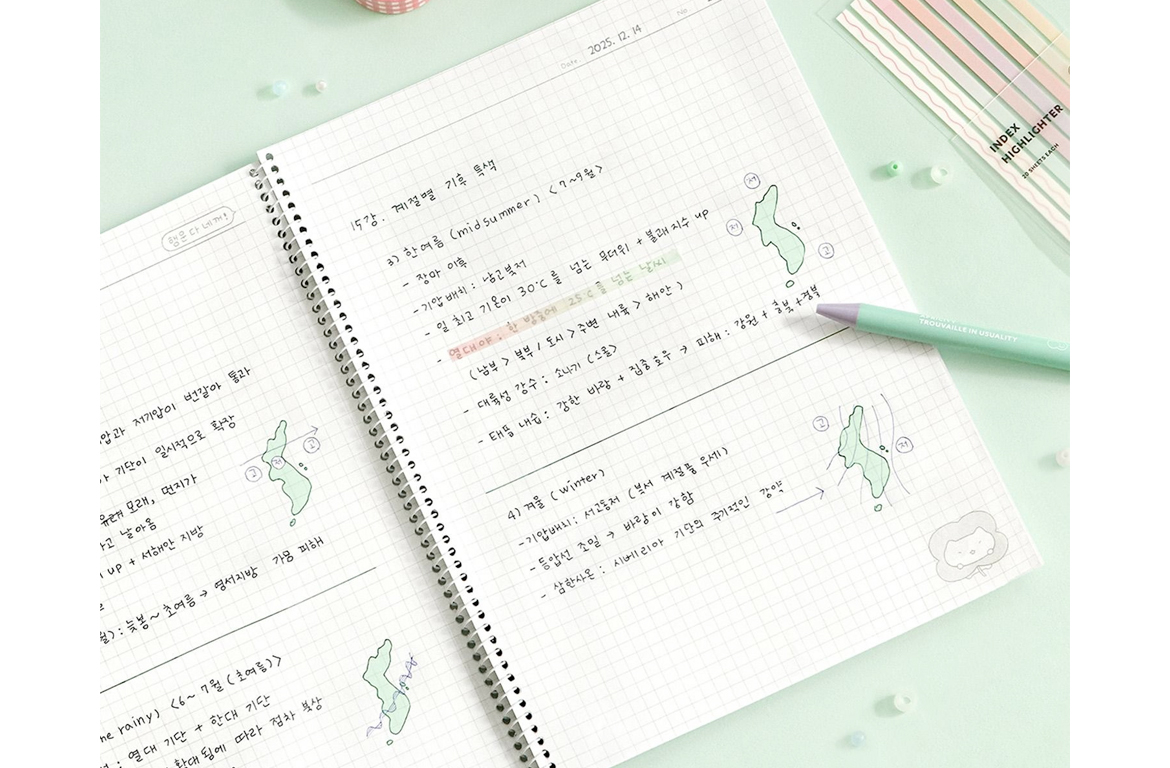 행운 다 네꺼!
압과 저기압이 번갈아 통과
기단이 일시적으로 확장
모래, 먼지가
고 날아옴
up + 서해안 지방
: 늦봄~초여름 → 영서지방 가뭄 피해
ne rainy) <6~7월 (초여름)>
: 열대 기단 + 한대 기단
확대됨에 따라 점차 북상
고
저
고
Date 2025. 12. 14
No
15강. 계절별 기후 특색
3) 한여름 (midsummer) <7~9월>
- 장마 이후
- 기압배치: 남고북저
- 일 최고 기온이 30°C를 넘는 무더위 + 불쾌지수 up
- 열대야: 한 밤중에 25°C를 넘는 날씨
(남부 > 북부 / 도시 > 주변 내륙 > 해안)
- 대륙성 강수: 소나기 (스콜)
- 태풍 내습: 강한 바람 + 집중호우 → 피해: 강원 + 호남 + 경북
저
저
고
4) 겨울 (winter)
- 기압배치: 서고동저 (북서 계절풍 우세)
- 등압선 조밀 → 바람이 강함
- 삼한사온: 시베리아 기단의 주기적인 강약
고
저
INDEX
HIGHLIGHTER
20 SHEETS EACH
TROUVAILLE IN USUALITY